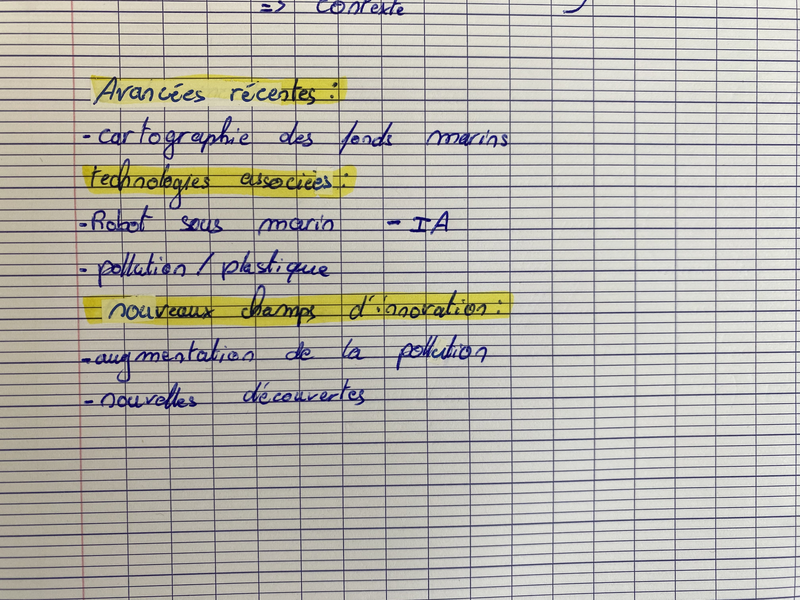 => Contexte
Avancées récentes :
- cartographie des fonds marins
technologies associées :
- Robot sous marin - IA
- pollution / plastique
nouveaux champs d'innovation :
- augmentation de la pollution
- nouvelles découvertes